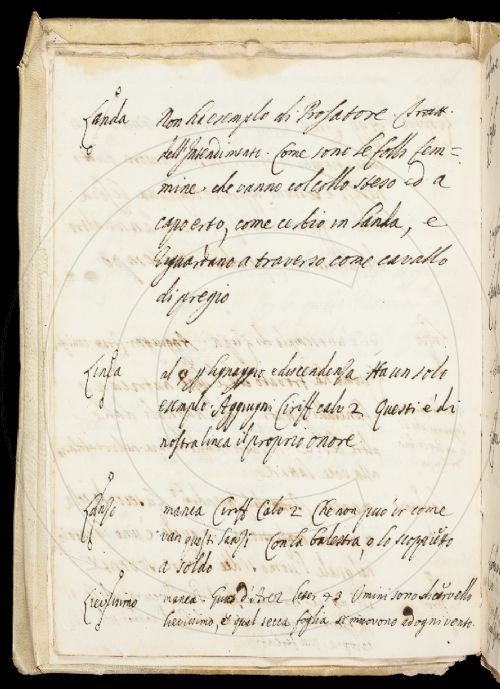 Landa Non ha esemplo di Prosatore. Tratt.
dell'Intendimento. Come sono le folli fem=
mine, che vanno col collo steso ed a
capo erto, come cerbio in landa, e
sguardano a traverso come cavallo
di pregio
Linea al § p lignaggio e discendenza. Ha un solo
esemplo. Aggiugni Ciriff calv 2 Questi è di
nostra linea il proprio onore
Lanzo manca Ciriff Calv 2 Che non può ir come
van questi lanzi Con la balestra, o lo scoppietto
a soldo
Lievissimo manca. Guit d'Arez leter Omini sono di cervello
lievissimo, e qual secca foglia se muovono ad ogni vento.